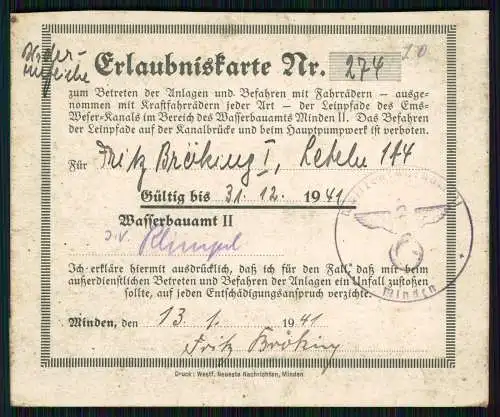 Erlaubniskarte Nr. 274
zum Betreten der Anlagen und Befahren mit Fahrrädern — ausge-
nommen mit Kraftfahrrädern jeder Art — der Leinpfade des Ems-
Weser-Kanals im Bereich des Wasserbauamts Minden II. Das Befahren
der Leinpfade auf der Kanalbrücke und beim Hauptpumpwerk ist verboten.
Für Fritz Bröking I, Leteln 144
Gültig bis 31. 12. 1941
Wasserbauamt II
Ich erkläre hiermit ausdrücklich, daß ich für den Fall, daß mir beim
außerdienstlichen Betreten und Befahren der Anlagen ein Unfall zustoßen
sollte, auf jeden Entschädigungsanspruch verzichte.
Minden, den 13. 1. 1941
Fritz Bröking
Druck: Westf. Neueste Nachrichten, Minden
Minden